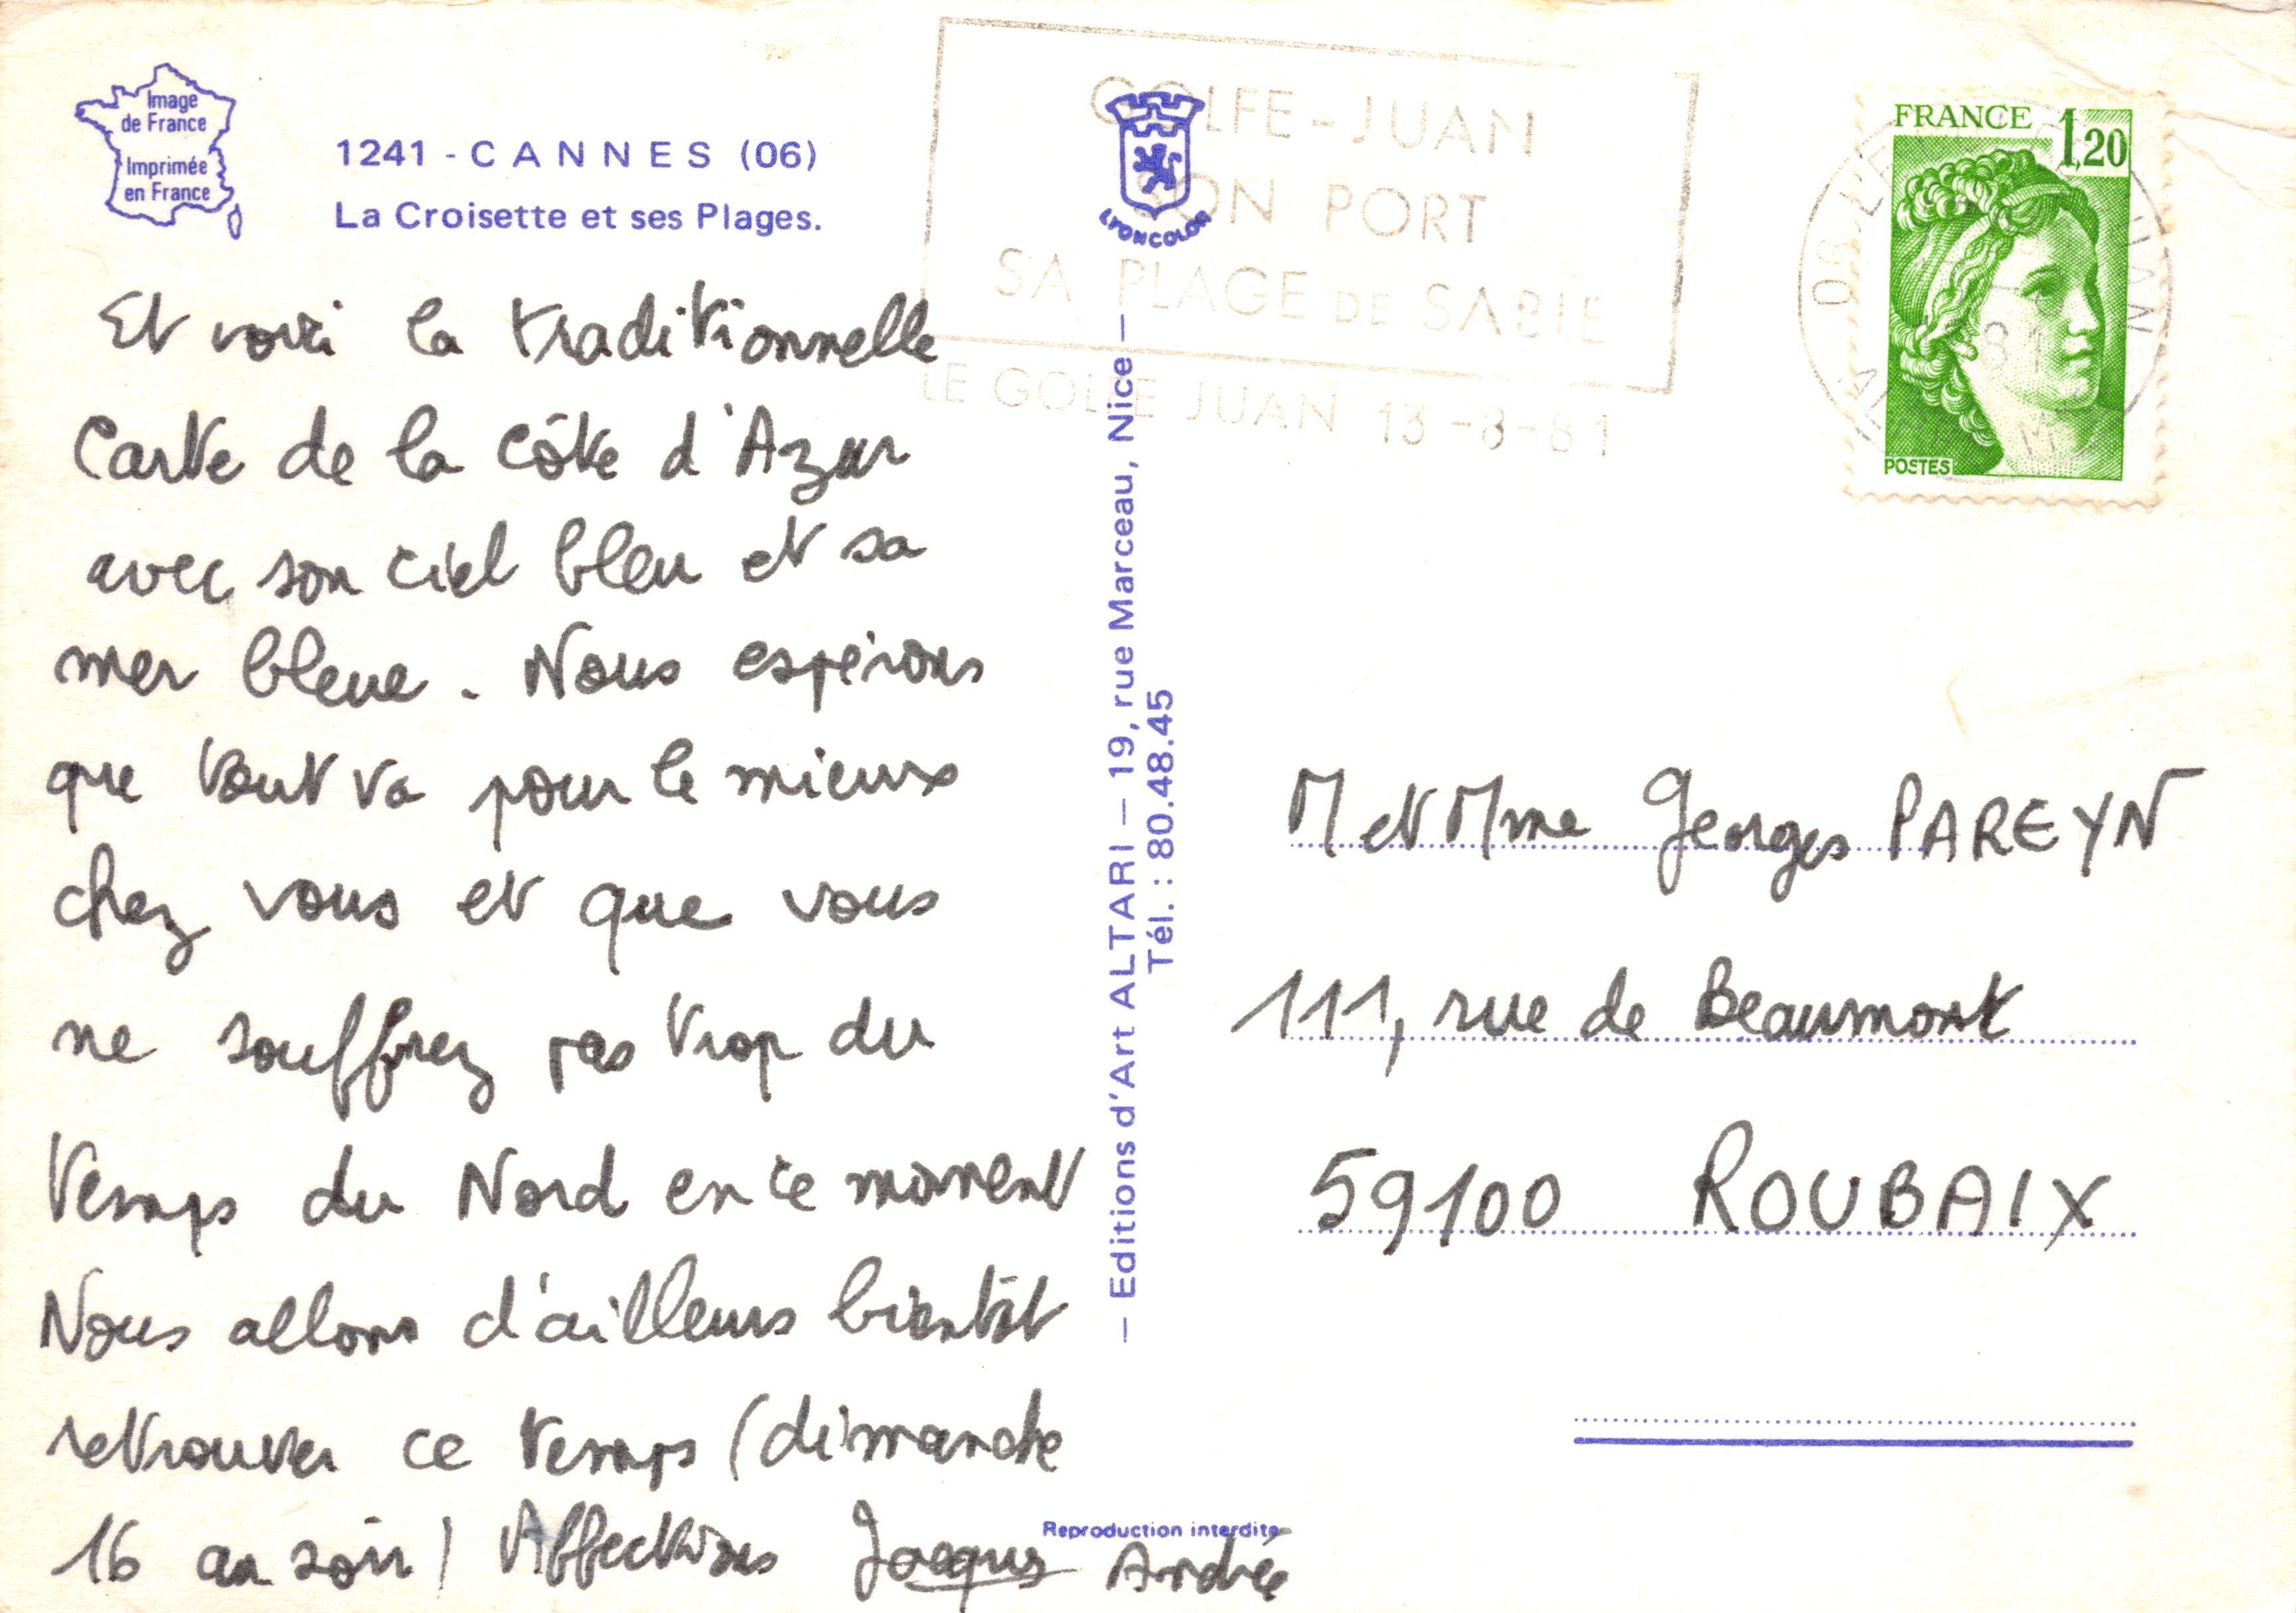 Image
de France
Imprimée
en France
1241 - CANNES (06)
La Croisette et ses Plages.
LYONCOLOR
GOLFE-JUAN
SON PORT
SA PLAGE DE SABLE
LE GOLFE JUAN 13-8-81
FRANCE 1,20
POSTES
Et voici la traditionnelle
Carte de la Côte d'Azur
avec son ciel bleu et sa
mer bleue. Nous espérons
que tout va pour le mieux
chez vous et que vous
ne souffrez pas trop du
temps du Nord en ce moment
Nous allons d'ailleurs bientôt
retrouver ce temps (dimanche
16 au soir) Affections Jacques Andrée
— Editions d'Art ALTARI — 19, rue Marceau, Nice —
Tél. : 80.48.45
M et Mme Georges PAREYN
111, rue de Beaumont
59100 ROUBAIX
Reproduction interdite